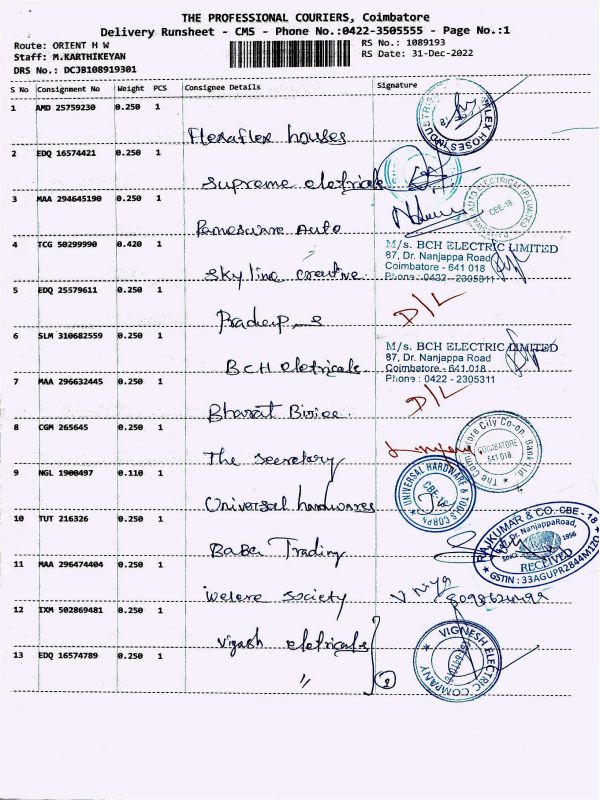 THE PROFESSIONAL COURIERS, Coimbatore
Delivery Runsheet - CMS - Phone No.:0422-3505555 - Page No.:1
Route: ORIENT H W RS No.: 1089193
Staff: M.KARTHIKEYAN RS Date: 31-Dec-2022
DRS No.: DCJB108919301
S No Consignment No Weight PCS Consignee Details Signature
1 AMD 25759230 0.250 1
Flexaflex houses
2 EDQ 16574421 0.250 1
Supreme eletricals
3 MAA 294645190 0.250 1
Rameswarre Auto
4 TCG 50299990 0.420 1
M/s. BCH ELECTRIC LIMITED
87, Dr. Nanjappa Road
Coimbatore - 641 018
Phone : 0422 - 2305311
Sky line creative
5 EDQ 25579611 0.250 1
Pradeep _ s D/L
6 SLM 310682559 0.250 1
M/s. BCH ELECTRIC LIMITED
87, Dr. Nanjappa Road
Coimbatore - 641.018.
Phone : 0422 - 2305311
BCH eletricals
7 MAA 296632445 0.250 1
Bharat D/L
8 CGM 265645 0.250 1
The secretary
The Coimbatore City Co-op. Bank Ltd.
COIMBATORE
641 018.
9 NGL 1900497 0.110 1
Universal hardwares
UNIVERSAL HARDWARE & TOOLS CORPN
CBE-18
10 TUT 216326 0.250 1
Baber Trading
RAJKUMAR & CO. CBE - 18
Dr. NanjappaRoad,
SINCE 1956
RECEIVED
GSTIN : 33AGUPR2844M1ZO
11 MAA 296474404 0.250 1
welere society
12 IXM 502869481 0.250 1
Vigash eletricals
VIGNESH ELECTRIC COMPANY
13 EDQ 16574789 0.250 1
" 2